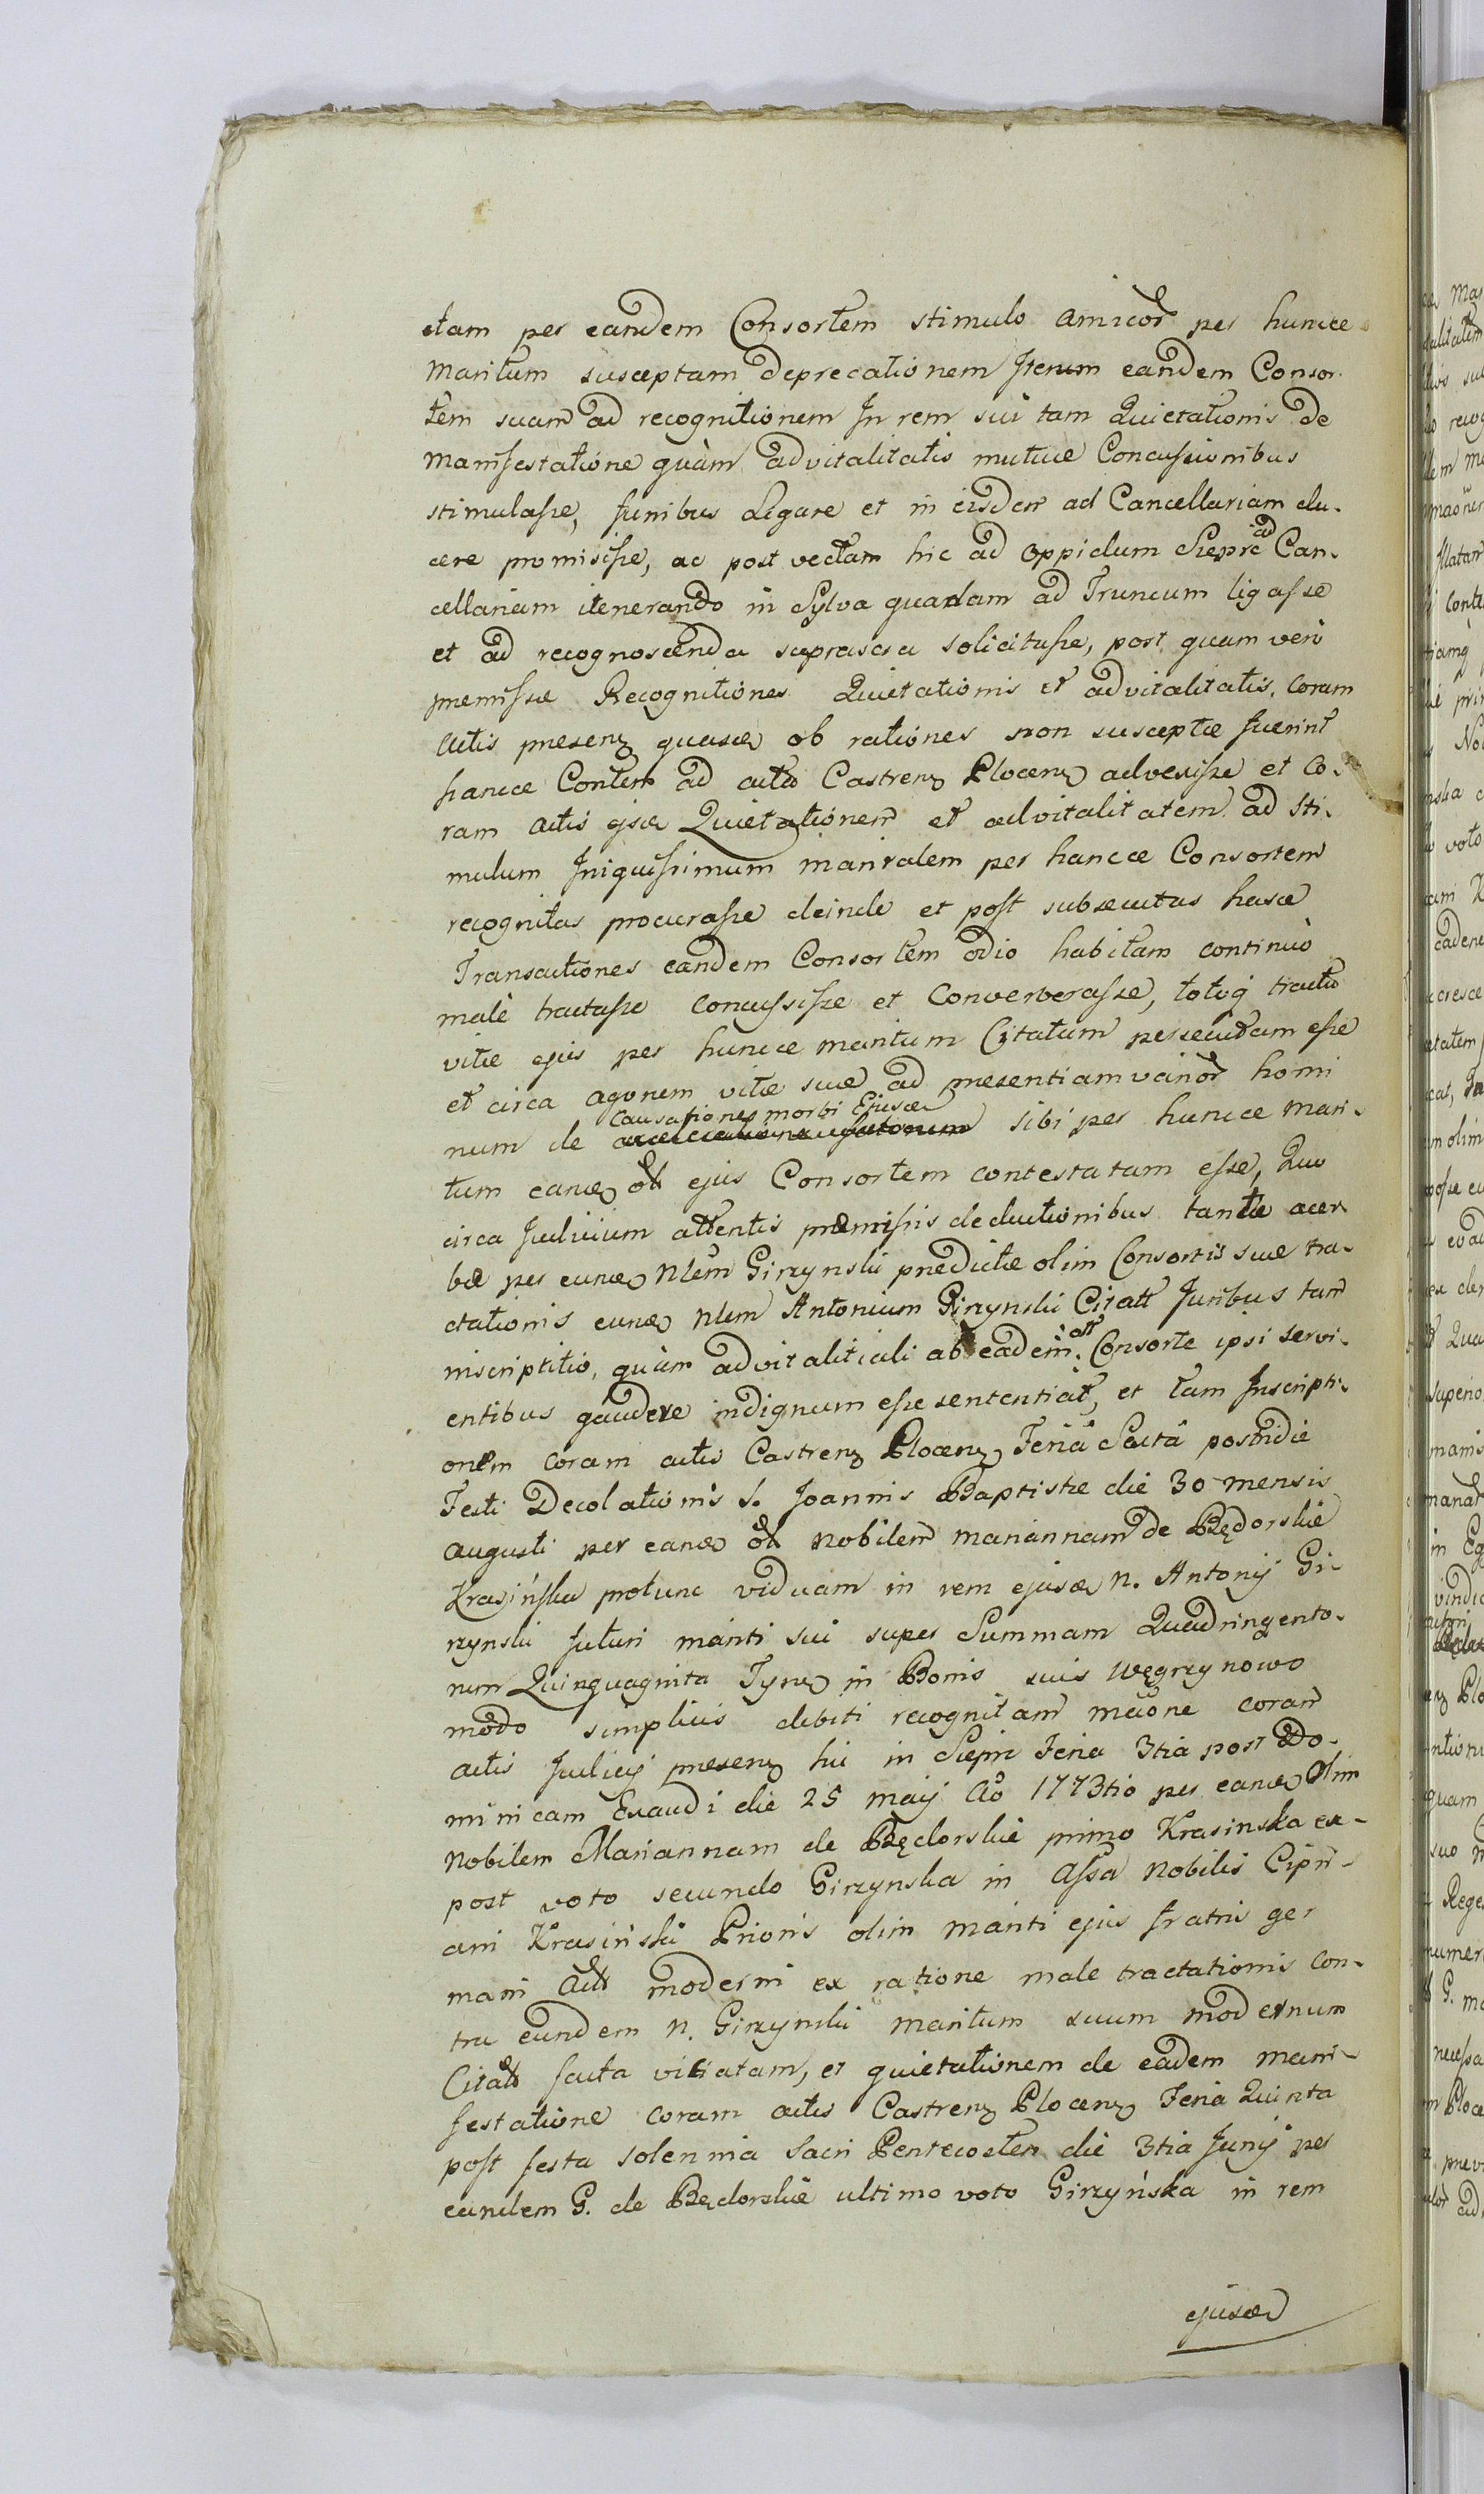 ctam per eandem Consortem stimulo amicor per huncce
Maritum susceptam deprecationem Iterum eandem Consor-
tem suam ad recognitionem In rem sui tam Quietationis de
Manifestatione quàm advitalitatis mutuæ Concussionibus
stimulasse, funibus Ligare et in eisdem ad Cancellariam du-
cere promisisse, ac post vectam hic ad oppidum Sieprc ad Can-
cellariam itenerando in Sylva quadam ad Truncum ligasse
et ad recognoscenda suprascra solicitasse, post quam verò
premissæ Recognitiones Quietationis et advitalitatis, coram
actis presenz quasce ob rationes non susceptæ fuerint
hancce Contem ad acta Castrenz Plocenz advexisse et co-
ram actis ejsce Quietationem et advitalitatem ad sti-
mulum Iniquissimum maritalem per hancce Consortem
recognitas procurasse deinde et post subsecutas hasce
Transactiones eandem Consortem odio habitam continuò
malè tractasse concussisse et Converberasse, totoq tractu
vitæ ejus per huncce maritum Citatum persecutam esse
et circa agonem vitæ suæ ad presentiam varior homi
num de Causationes morbi Ejusce sibi per huncce mari-
tum eance olt ejus Consortem contestatam esse, Quo
circa Judicium attentis præmissis deductionibus tantæ acer
bæ per eunce Nlem Girzynski predictæ olim Consortis suæ tra-
ctationis eunce Nlem Antonium Girzynski Citatt Juribus tam
inscriptitio, quàm advitalitiali ab eadem olt Consorte ipsi servi-
entibus gaudere indignum esse sententiat, et tam Inscripti-
onem coram actis Castrenz Plocenz Feriâ Sextâ postridie
Festi Decolationis S. Joannis Baptistæ die 30 mensis
augusti per eance olt Nobilem Mariannam de Będorskie
Krasińska protunc viduam in rem ejusce N. Antonij Gi-
rzynski futuri mariti sui super Summam Quadringento-
rum Quinquaginta Tynz in Bonis suis Węgrzynowo
modo simplicis debiti recognitam mãone coram
actis Judicij presenz hic in Siepr Feria 3tia post Do-
minicam Exaudi die 25 maij Ao 1773tio per eance Olim
Nobilem Mariannam de Będorskie primo Krasinska ex-
post voto secundo Girzynska in Assa Nobilis Cipri-
ani Krasiński Prioris olim mariti ejus fratris ger
mani Act moderni ex ratione male tractationis con-
tra eundem N. Girzynski maritum suum modernum
Citatt facta vitiatam, et quietationem de eadem mani-
festatione coram actis Castrenz Plocenz Feria Quinta
post festa solennia Sacri Pentecosten die 3tia Junij per
eandem G. de Będorskie ultimo voto Girzyńska in rem
ejusce